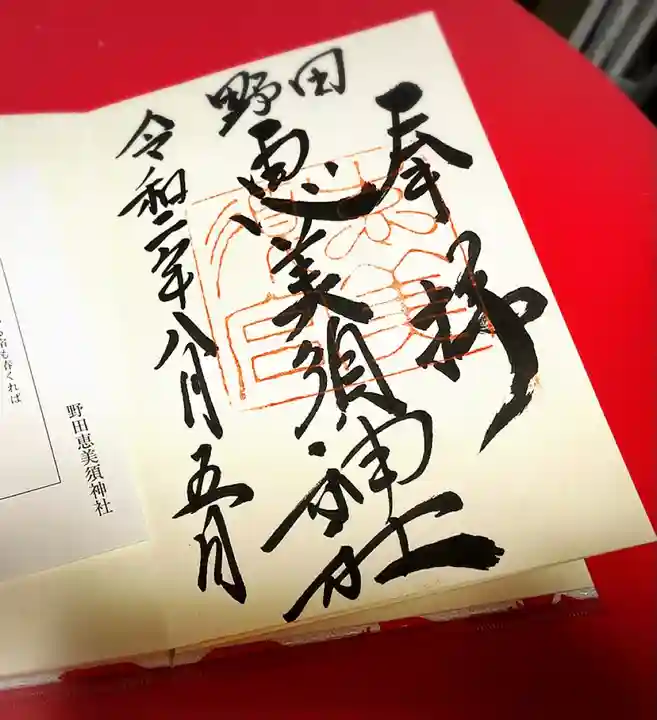 奉拝
野田
恵美須神社
令和二年八月五日
る宿も春くれば
野田恵美須神社